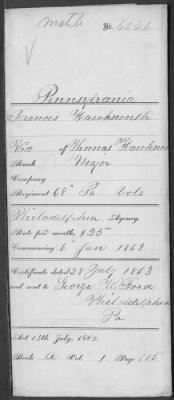 No. 4246
Pennsylvania
Frances Hawksworth
Wid of Thomas Hawkswo
Rank Major
Company
Regiment 68" Pa Vols
Philadelphia Agency.
Rate per month, $25
Commencing 6 Jan 1863
Certificate dated 28 July 1863
and sent to George W. Ford
Philadelphia
Pa
Act 14th July, 1862.
Book A Vol. 1 Page 115